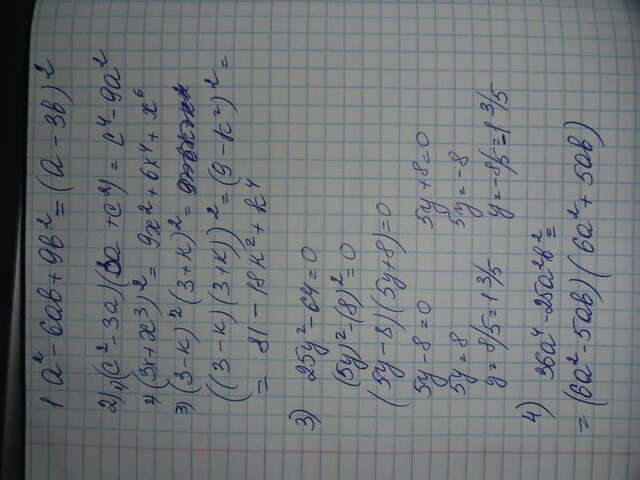 1 a² - 6ab + 9b² = (a - 3b)²
2) 1) (c² - 3a)(3a + c²) = c⁴ - 9a²
2) (3x + x³)² = 9x² + 6x⁴ + x⁶
3) (3 - k)² (3 + k)² =
((3 - k)(3 + k))² = (9 - k²)² =
= 81 - 18k² + k⁴
3) 25y² - 64 = 0
(5y)² - (8)² = 0
(5y - 8)(5y + 8) = 0
5y - 8 = 0 5y + 8 = 0
5y = 8 5y = -8
y = 8/5 = 1 3/5 y = -8/5 = 1 3/5
4) 36a⁴ - 25a²b² =
= (6a² - 5ab)(6a² + 5ab)